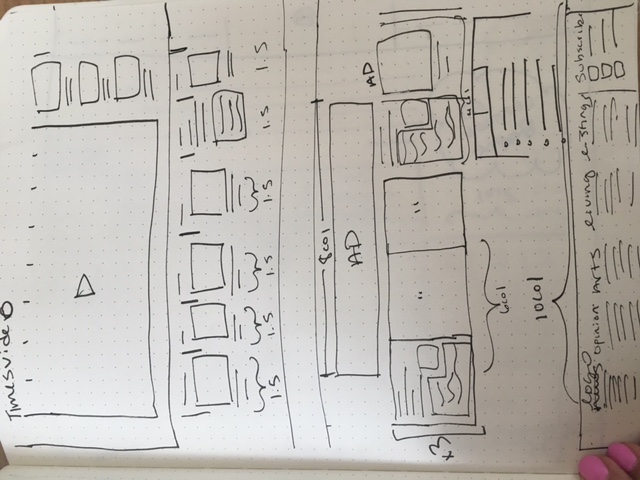 Timesvideo
1.5 1.5 1.5 1.5 1.5 1.5
8col
AD
AD
x3
" "
6col
4col
10col
logo
news opinion Arts living listings Subscribe